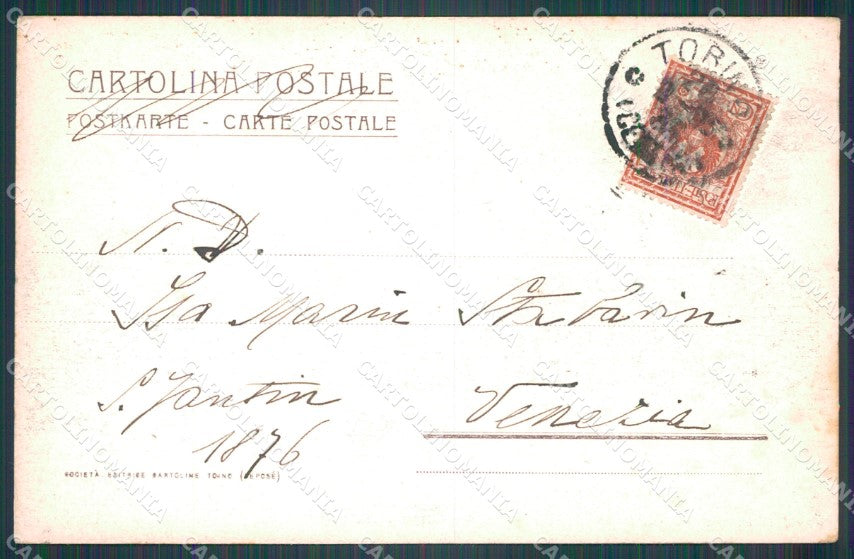 CARTOLINA POSTALE
POSTKARTE - CARTE POSTALE
TORIN
N. D.
Isa Marin
S. Pantin
1876
Venezia
SOCIETÀ EDITRICE CARTOLINE TORINO (DEPOSÉ)
CARTOLINOMANIA